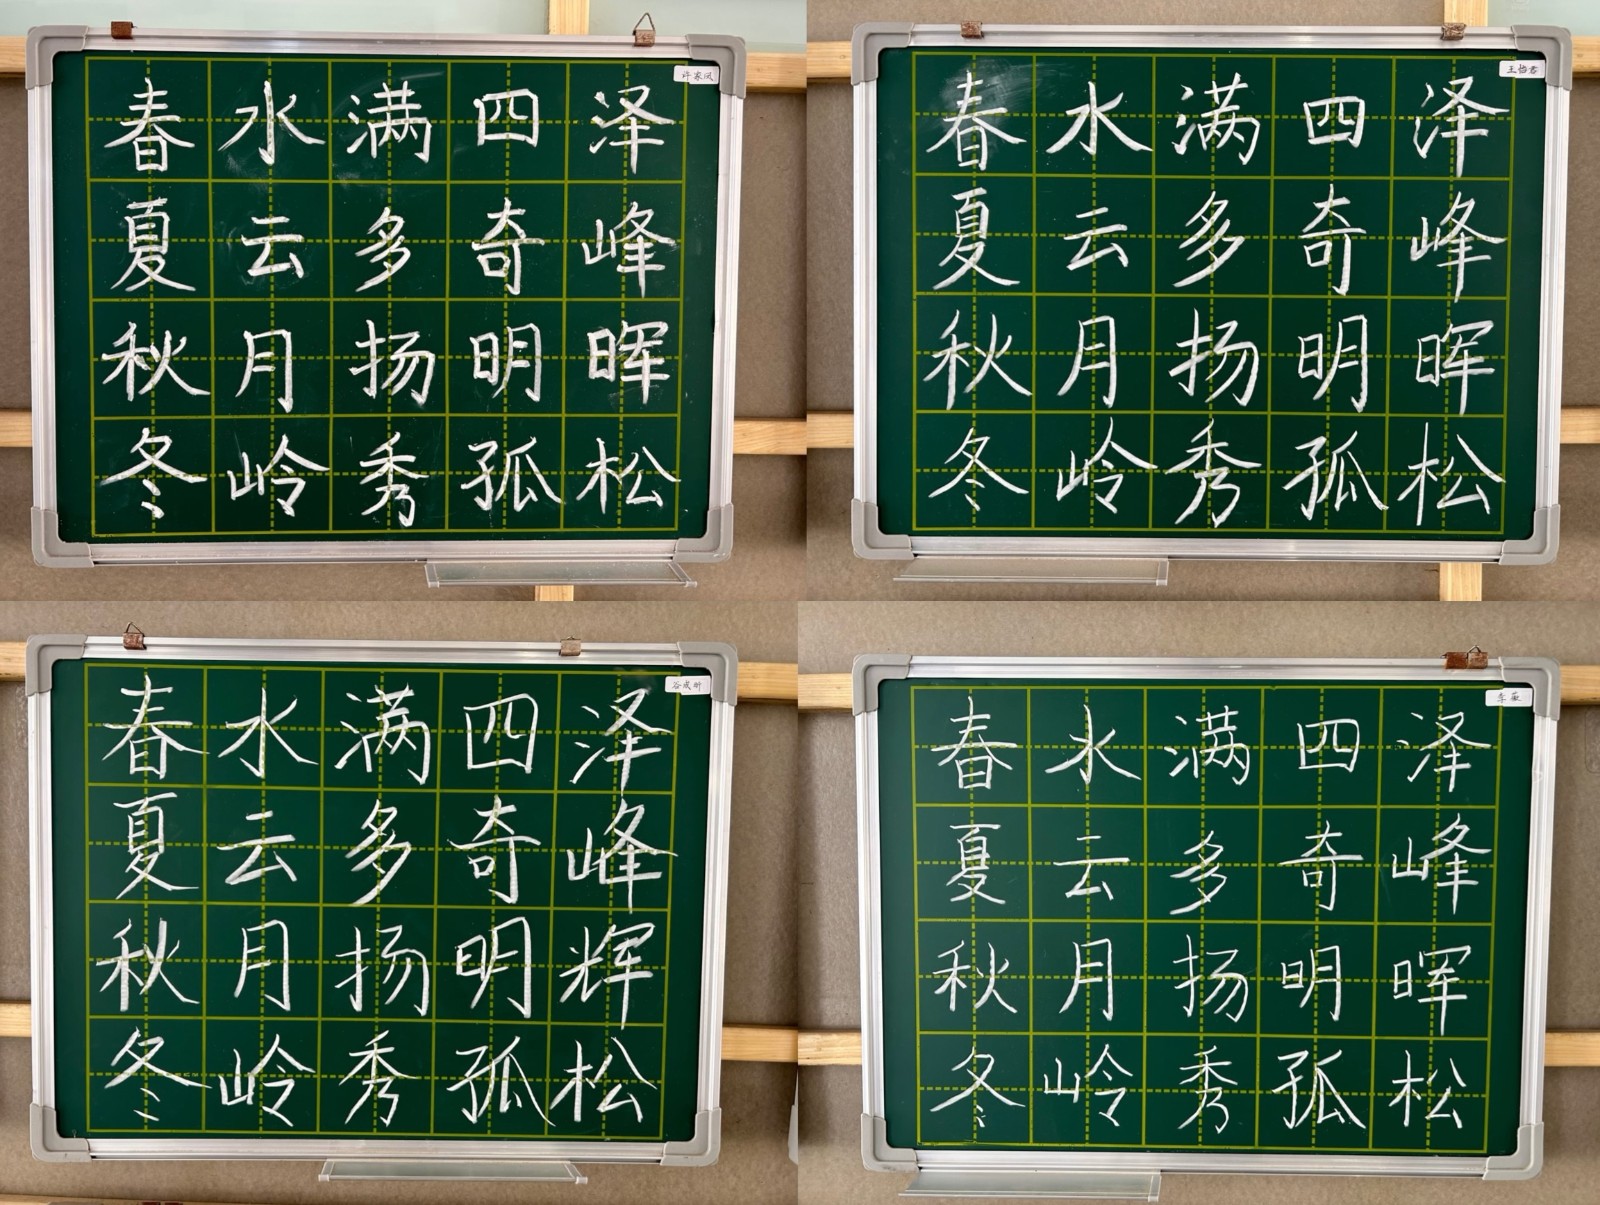 许家凤
春水满四泽
夏云多奇峰
秋月扬明晖
冬岭秀孤松
王怡君
春水满四泽
夏云多奇峰
秋月扬明晖
冬岭秀孤松
谷成昕
春水满四泽
夏云多奇峰
秋月扬明辉
冬岭秀孤松
春水满四泽
夏云多奇峰
秋月扬明晖
冬岭秀孤松